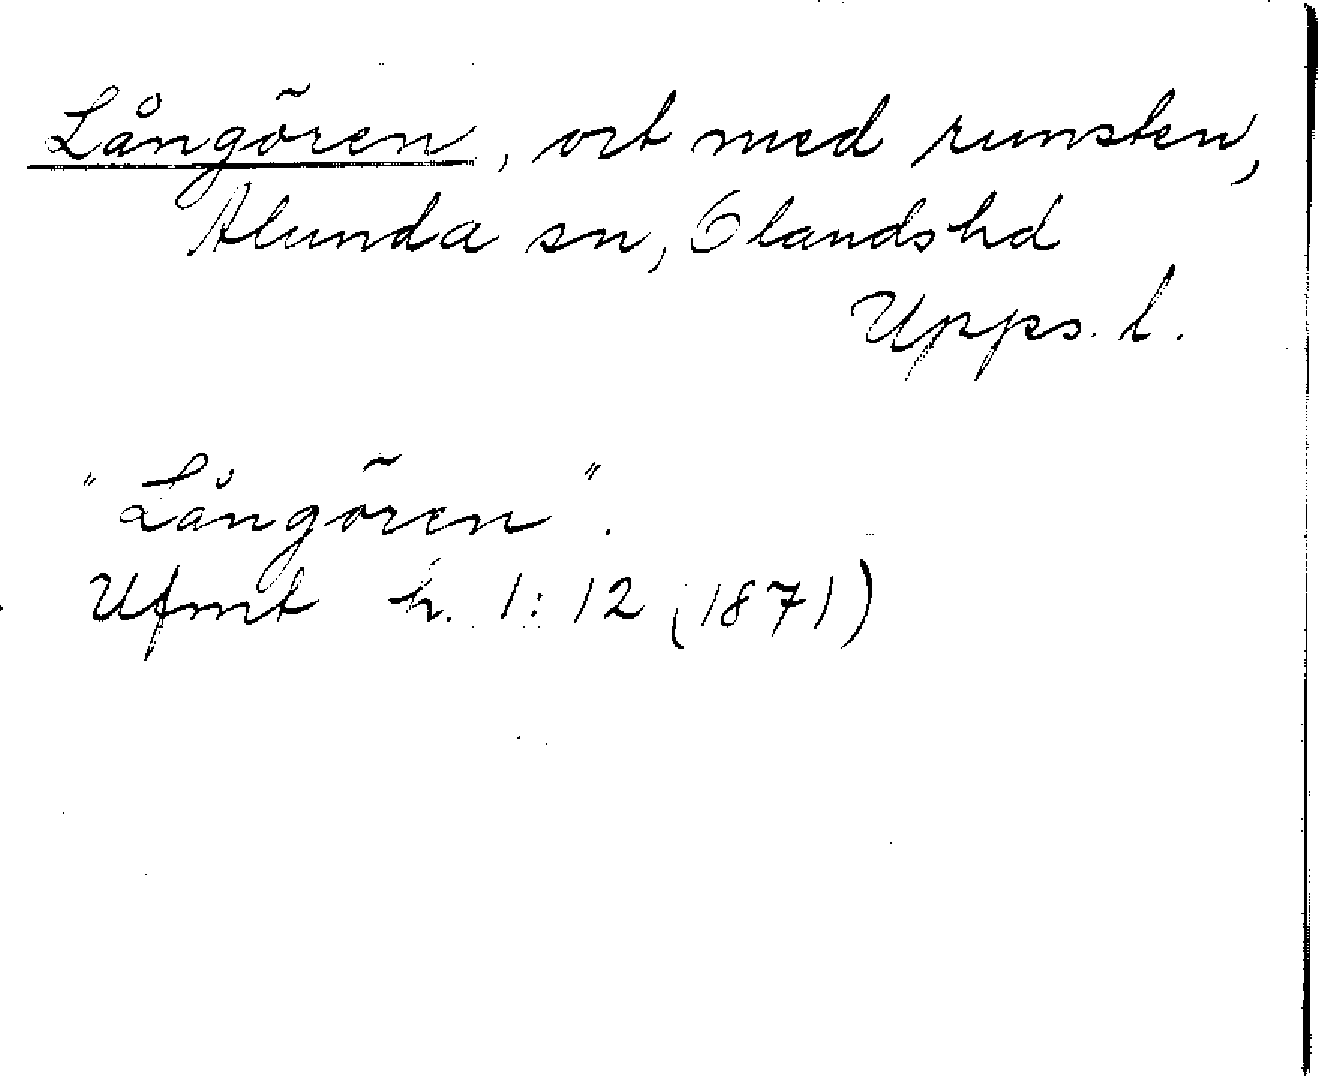 Långören, ort med runsten,
Alunda sn, Olands hd
Upps. l.
"Långören".
Ufmt h. 1:12 (1871)